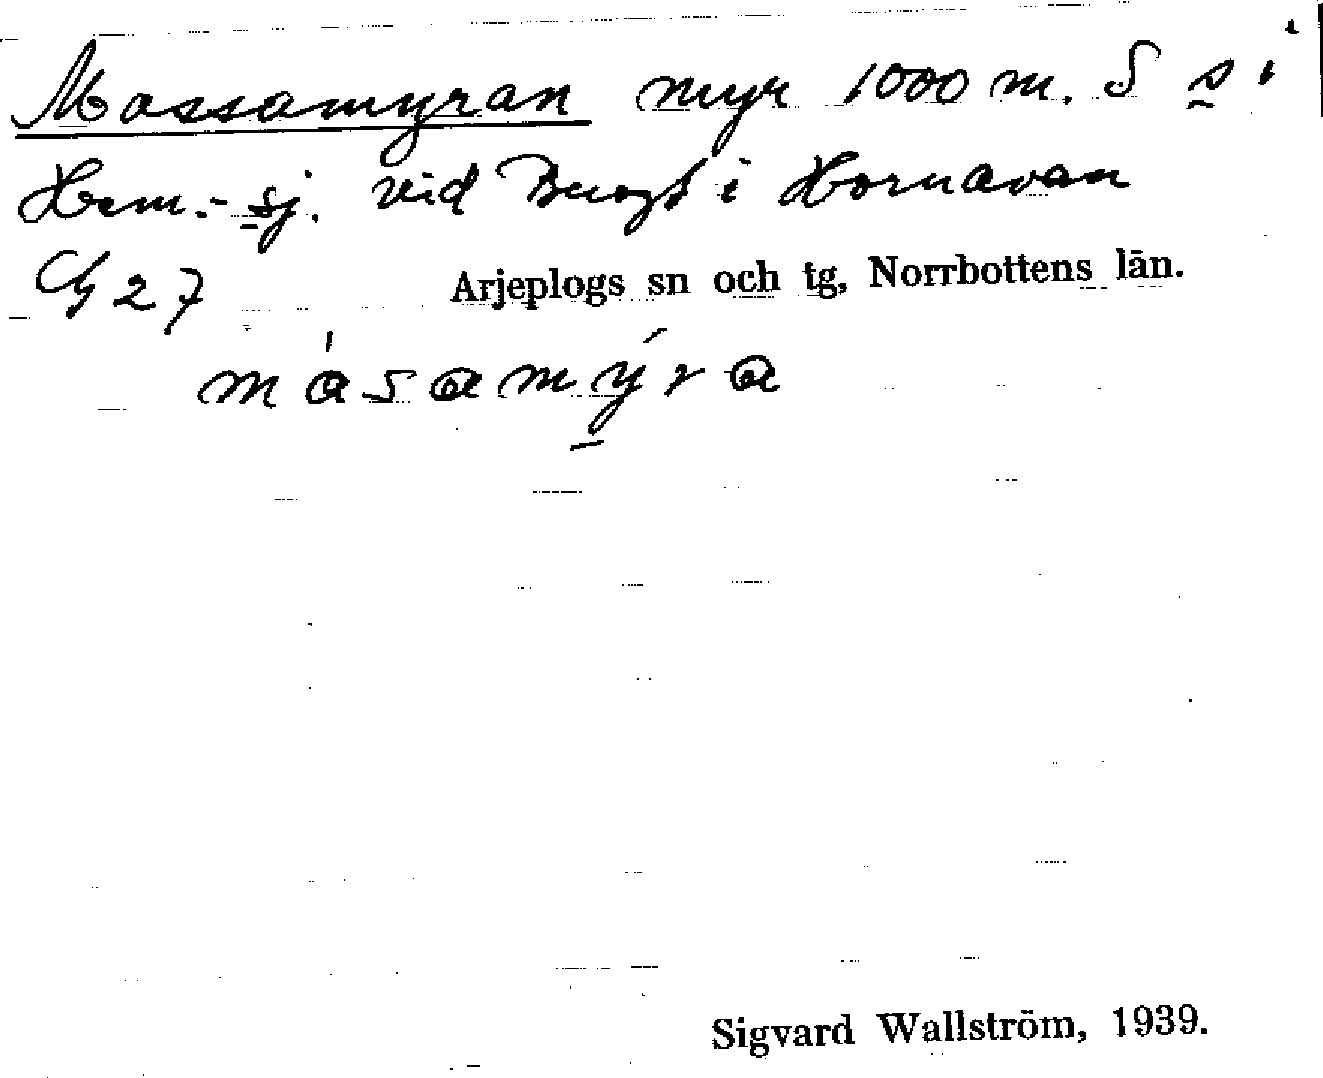 Mossamyran myr 1000 m. S s i
Hem.-sj. vid Bugt i Hornavan
G 27
Arjeplogs sn och tg, Norrbottens län.
måsamýra
Sigvard Wallström, 1939.